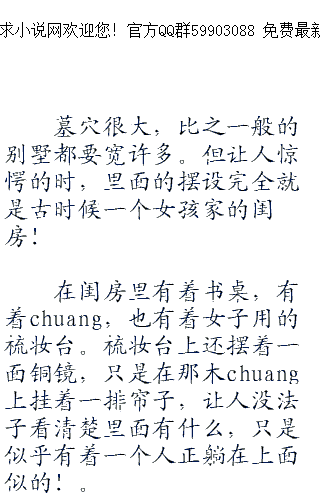 求小说网欢迎您！官方QQ群59903088 免费最新
墓穴很大，比之一般的
别墅都要宽许多。但让人惊
愕的时，里面的摆设完全就
是古时候一个女孩家的闺
房！
在闺房里有着书桌，有
着chuang，也有着女子用的
梳妆台。梳妆台上还摆着一
面铜镜，只是在那木chuang
上挂着一排帘子，让人没法
子看清楚里面有什么，只是
似乎有着一个人正躺在上面
似的！。